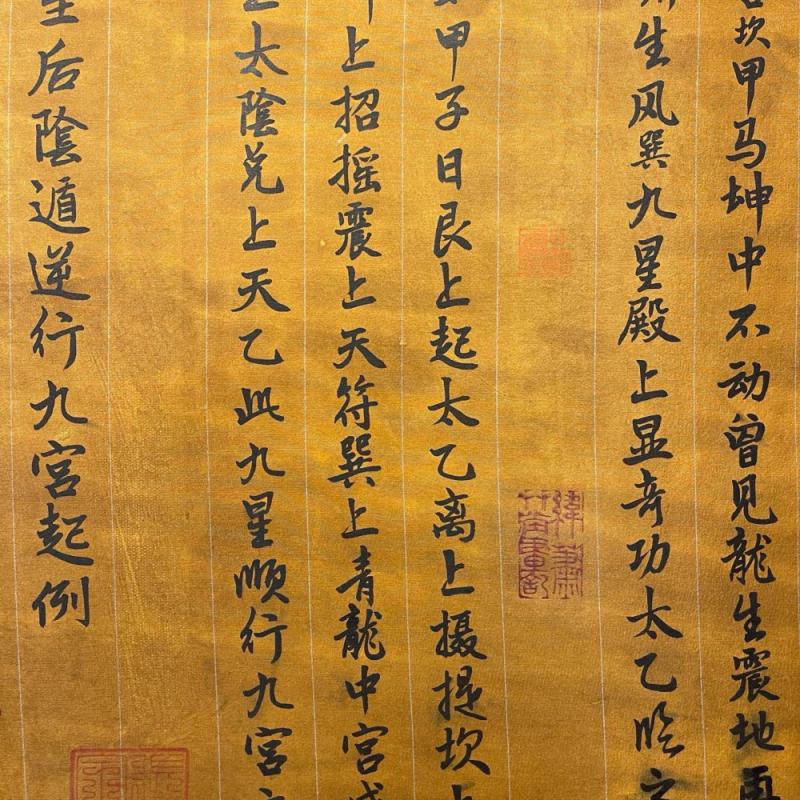 坎甲马坤中不动曾见龍生震地
生风巽九星殿上显奇功太乙临
甲子日艮上起太乙离上摄提坎上
上招摇震上天符巽上青龍中宫
太陰兑上天乙此九星顺行九宫
后陰遁逆行九宫起例